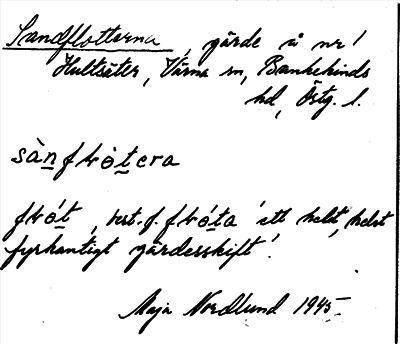 Sandflottorna, gärde å nr 1
Hultsäter, Värna sn, Bankekinds
hd, Östg. l.
sànflòtera
flót, best. f. flóta 'ett helst, helst
fyrkantigt gärdesskift'.
Maja Nordlund 1945